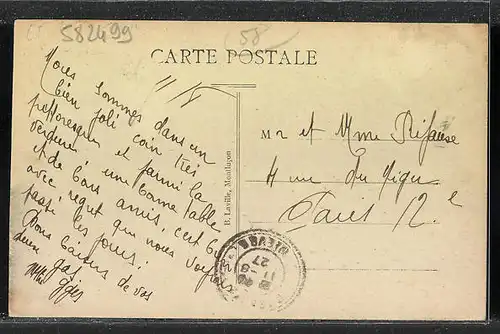 582499
58
CARTE POSTALE
Nous sommes dans un
bien joli coin très
pittoresque et parmi la
verdure, une bonne table
et de bons amis, c'est
avec regret que nous voyons
passer les jours.
Bons baisers de vos
deux gas
Mr et Mme
4 rue du
Paris 12e
B. Laville, Montluçon
NIEVRE
11-8
27